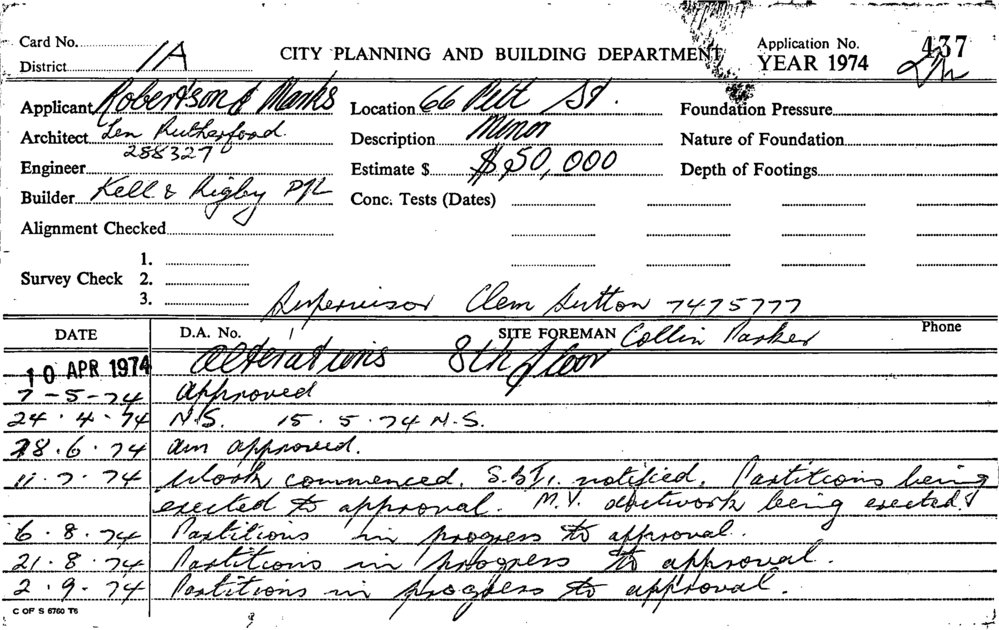 Card No. CITY PLANNING AND BUILDING DEPARTMENT Application No. 437
District 1A YEAR 1974
Applicant Robertson & Marks Location 66 Pitt St. Foundation Pressure
Architect Len Rutherfoord Description Minor Nature of Foundation
288327
Engineer Estimate $ $50,000 Depth of Footings
Builder Kell & Rigby P/L Conc. Tests (Dates)
Alignment Checked
1.
Survey Check 2.
3.
Supervisor Clem Sutton 7475777
DATE D.A. No. SITE FOREMAN Collin Parker Phone
10 APR 1974 Alterations 8th floor
7-5-74 Approved
24.4.74 N.S. 15.5.74 N.S.
28.6.74 am approved.
11.7.74 Work commenced. notified. Partitions being
erected to approval. M.V. ductwork being erected
6.8.74 Partitions in progress to approval.
21.8.74 Partitions in progress to approval.
2.9.74 Partitions in progress to approval.
C OF S 6760 T6